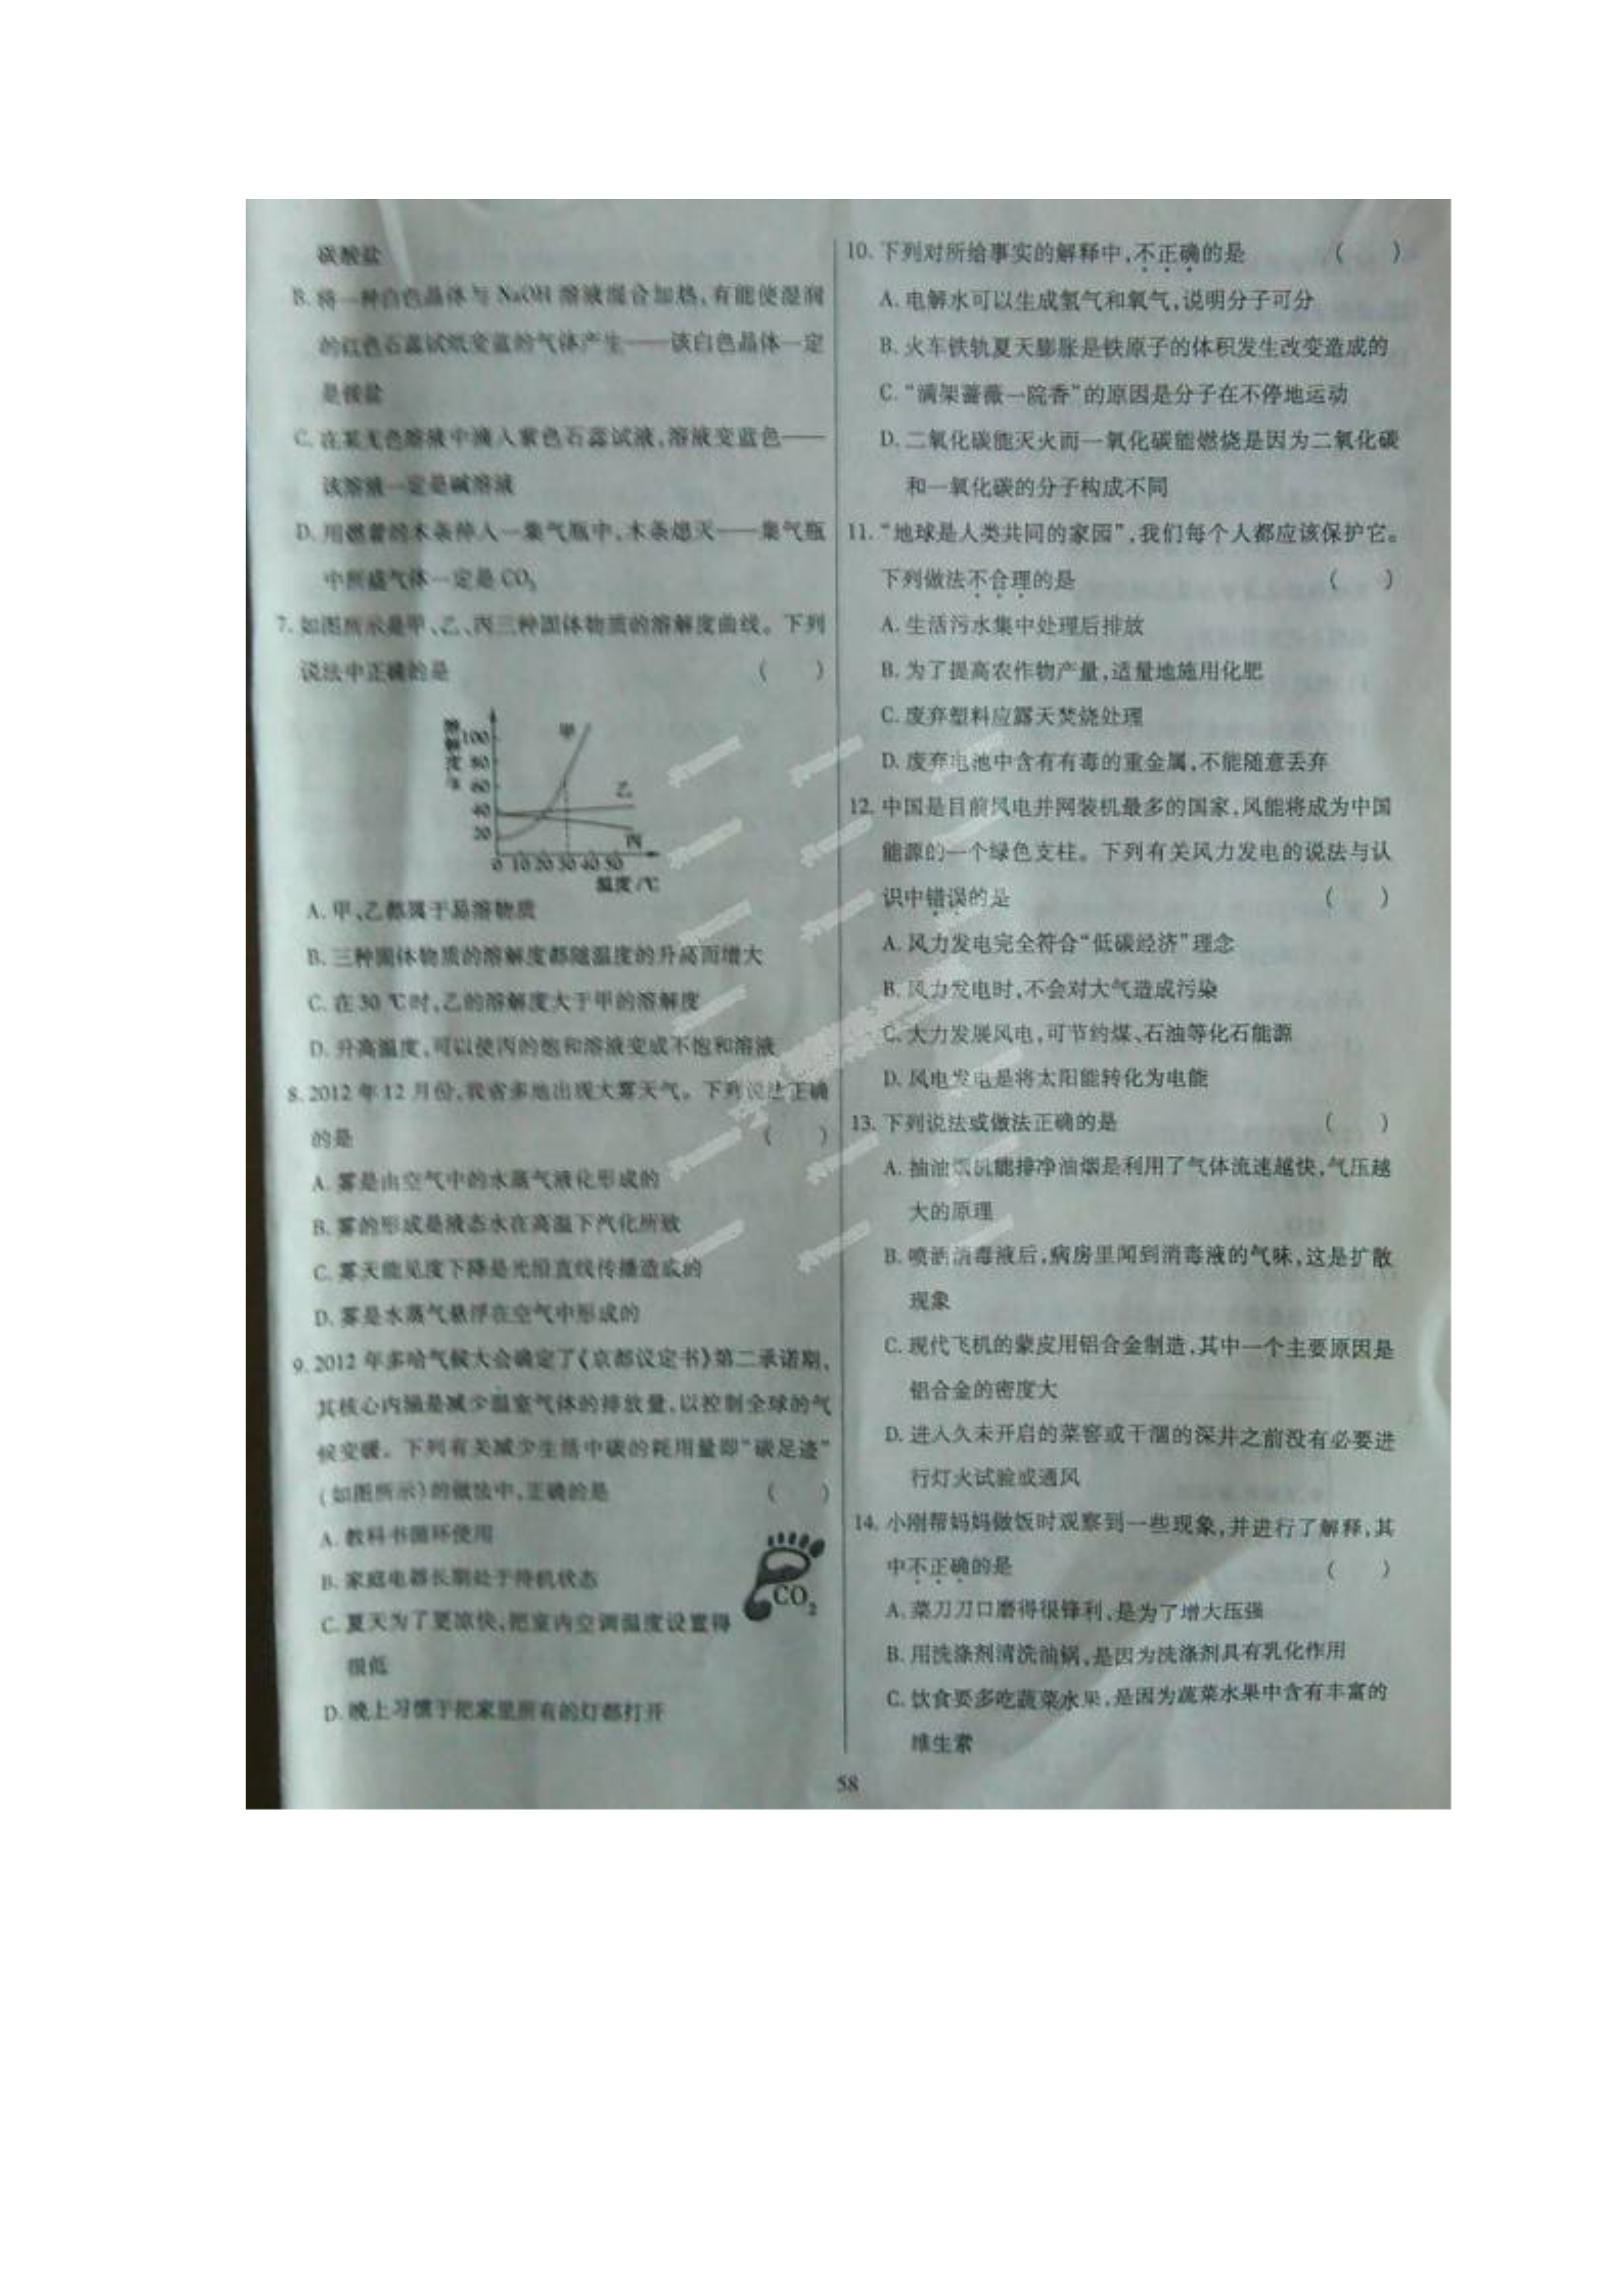 碳酸盐
B. 将一种白色晶体与 NaOH 溶液混合加热,有能使湿润
的红色石蕊试纸变蓝的气体产生——该白色晶体一定
是铵盐
C. 在某无色溶液中滴入紫色石蕊试液,溶液变蓝色——
该溶液一定是碱溶液
D. 用燃着的木条伸入一集气瓶中,木条熄灭——集气瓶
中所盛气体一定是 CO₂
7. 如图所示是甲、乙、丙三种固体物质的溶解度曲线。下列
说法中正确的是 ( )
溶解度/g
100
80
60
40
20
甲
乙
丙
0 10 20 30 40 50
温度/℃
A. 甲、乙都属于易溶物质
B. 三种固体物质的溶解度都随温度的升高而增大
C. 在 30 ℃时,乙的溶解度大于甲的溶解度
D. 升高温度,可以使丙的饱和溶液变成不饱和溶液
8. 2012 年 12 月份,我省多地出现大雾天气。下列说法正确
的是 ( )
A. 雾是由空气中的水蒸气液化形成的
B. 雾的形成是液态水在高温下汽化所致
C. 雾天能见度下降是光沿直线传播造成的
D. 雾是水蒸气悬浮在空气中形成的
9. 2012 年多哈气候大会确定了《京都议定书》第二承诺期,
其核心内涵是减少温室气体的排放量,以控制全球的气
候变暖。下列有关减少生活中碳的耗用量即“碳足迹”
(如图所示)的做法中,正确的是 ( )
A. 教科书循环使用
B. 家庭电器长期处于待机状态
C. 夏天为了更凉快,把室内空调温度设置得
很低
D. 晚上习惯于把家里所有的灯都打开
CO₂
10. 下列对所给事实的解释中,不正确的是 ( )
A. 电解水可以生成氢气和氧气,说明分子可分
B. 火车铁轨夏天膨胀是铁原子的体积发生改变造成的
C. “满架蔷薇一院香”的原因是分子在不停地运动
D. 二氧化碳能灭火而一氧化碳能燃烧是因为二氧化碳
和一氧化碳的分子构成不同
11. “地球是人类共同的家园”,我们每个人都应该保护它。
下列做法不合理的是 ( )
A. 生活污水集中处理后排放
B. 为了提高农作物产量,适量地施用化肥
C. 废弃塑料应露天焚烧处理
D. 废弃电池中含有有毒的重金属,不能随意丢弃
12. 中国是目前风电并网装机最多的国家,风能将成为中国
能源的一个绿色支柱。下列有关风力发电的说法与认
识中错误的是 ( )
A. 风力发电完全符合“低碳经济”理念
B. 风力发电时,不会对大气造成污染
C. 大力发展风电,可节约煤、石油等化石能源
D. 风电发电是将太阳能转化为电能
13. 下列说法或做法正确的是 ( )
A. 抽油烟机能排净油烟是利用了气体流速越快,气压越
大的原理
B. 喷洒消毒液后,病房里闻到消毒液的气味,这是扩散
现象
C. 现代飞机的蒙皮用铝合金制造,其中一个主要原因是
铝合金的密度大
D. 进入久未开启的菜窖或干涸的深井之前没有必要进
行灯火试验或通风
14. 小刚帮妈妈做饭时观察到一些现象,并进行了解释,其
中不正确的是 ( )
A. 菜刀刀口磨得很锋利,是为了增大压强
B. 用洗涤剂清洗油锅,是因为洗涤剂具有乳化作用
C. 饮食要多吃蔬菜水果,是因为蔬菜水果中含有丰富的
维生素
58